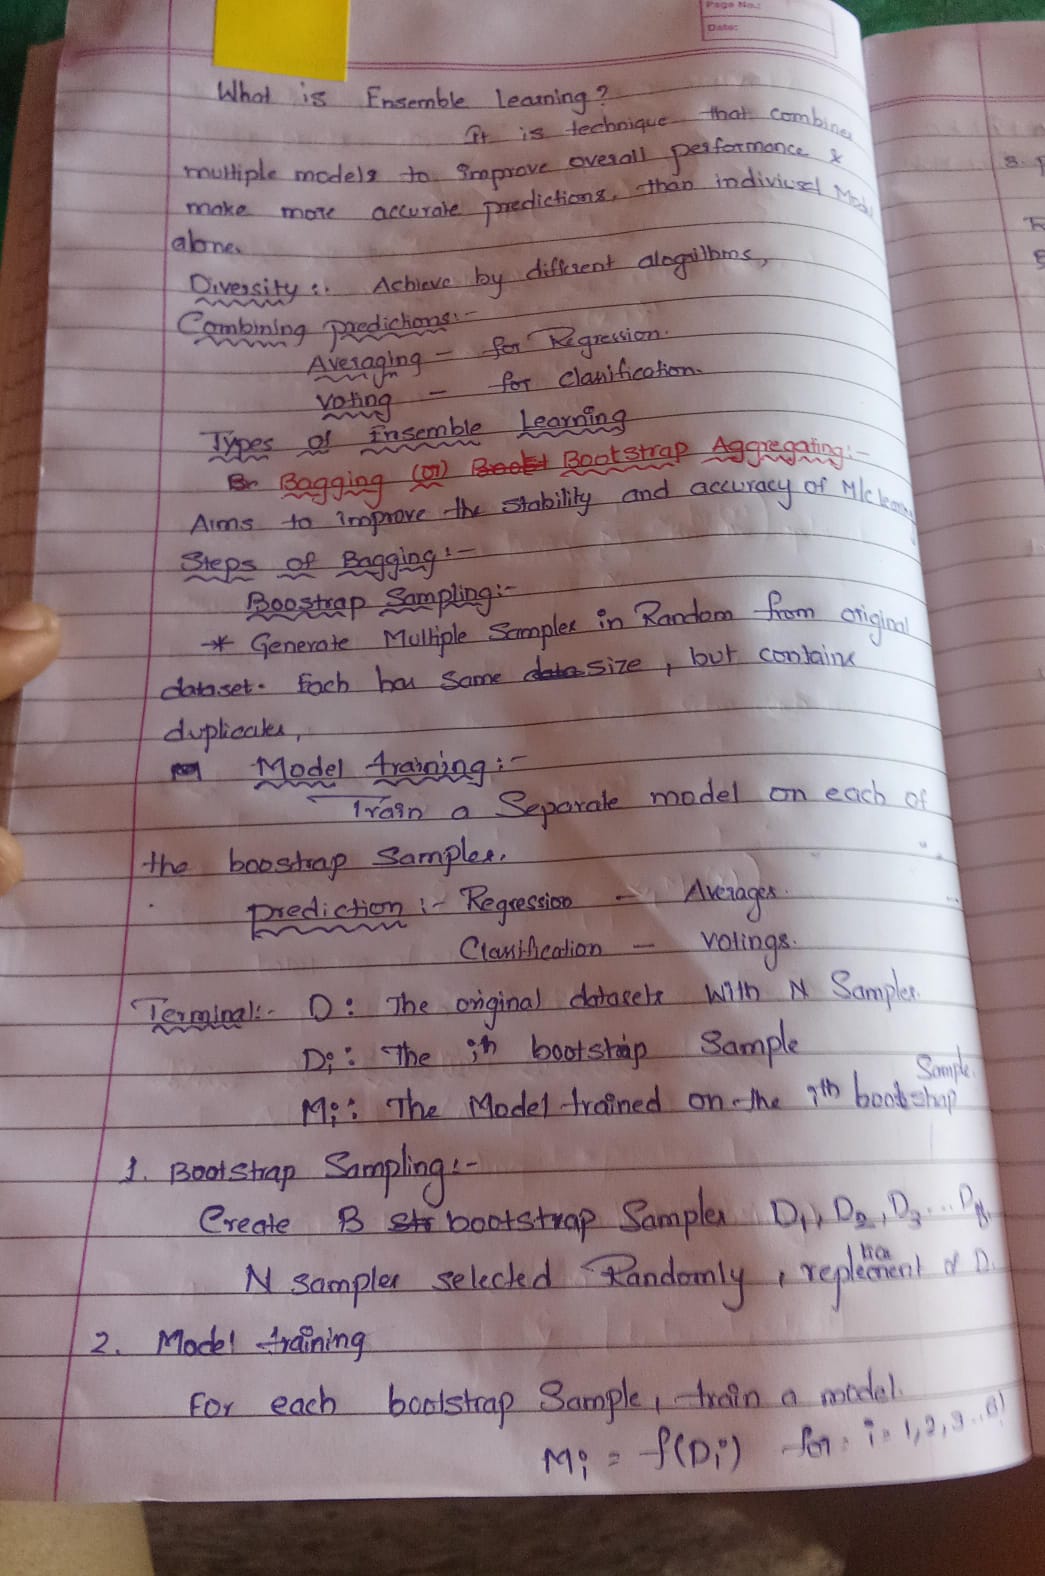 Page No.:
Date:
What is Ensemble learning?
It is technique that combines
multiple models to improve overall performance &
make more accurate predictions, than indiviusel Model
alone.
Diversity :. Achieve by different alogrithms,
Combining predictions:-
Averaging - for Regression.
Voting - for Classification.
Types of Ensemble Learning
Bagging (or) Bootstrap Aggregating:-
Aims to improve the stability and accuracy of M/c learning
Steps of Bagging:-
Boostrap Sampling:-
* Generate Multiple Samples in Random from original
dataset. Each has same data size, but contains
duplicates,
Model training:-
Train a Separate model on each of
the boostrap samples.
prediction :- Regression - Averages.
Classification - Votings.
Terminal:- D: The original datasets with N Samples.
Di: The ith bootstrap Sample
Sample.
Mi: The Model trained on the ith bootstrap
1. Bootstrap Sampling:-
Create B bootstrap Samples D1, D2, D3... DB,
N samples selected Randomly, replement of D.
2. Model training
For each bootstrap Sample, train a model.
Mi = f(Di) for i = 1,2,3..B)